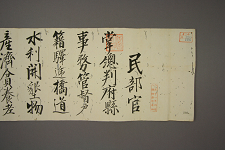 民部官
掌總判府縣
事務管督戶
籍驛逓橋道
水利開墾物
産濟貧養老